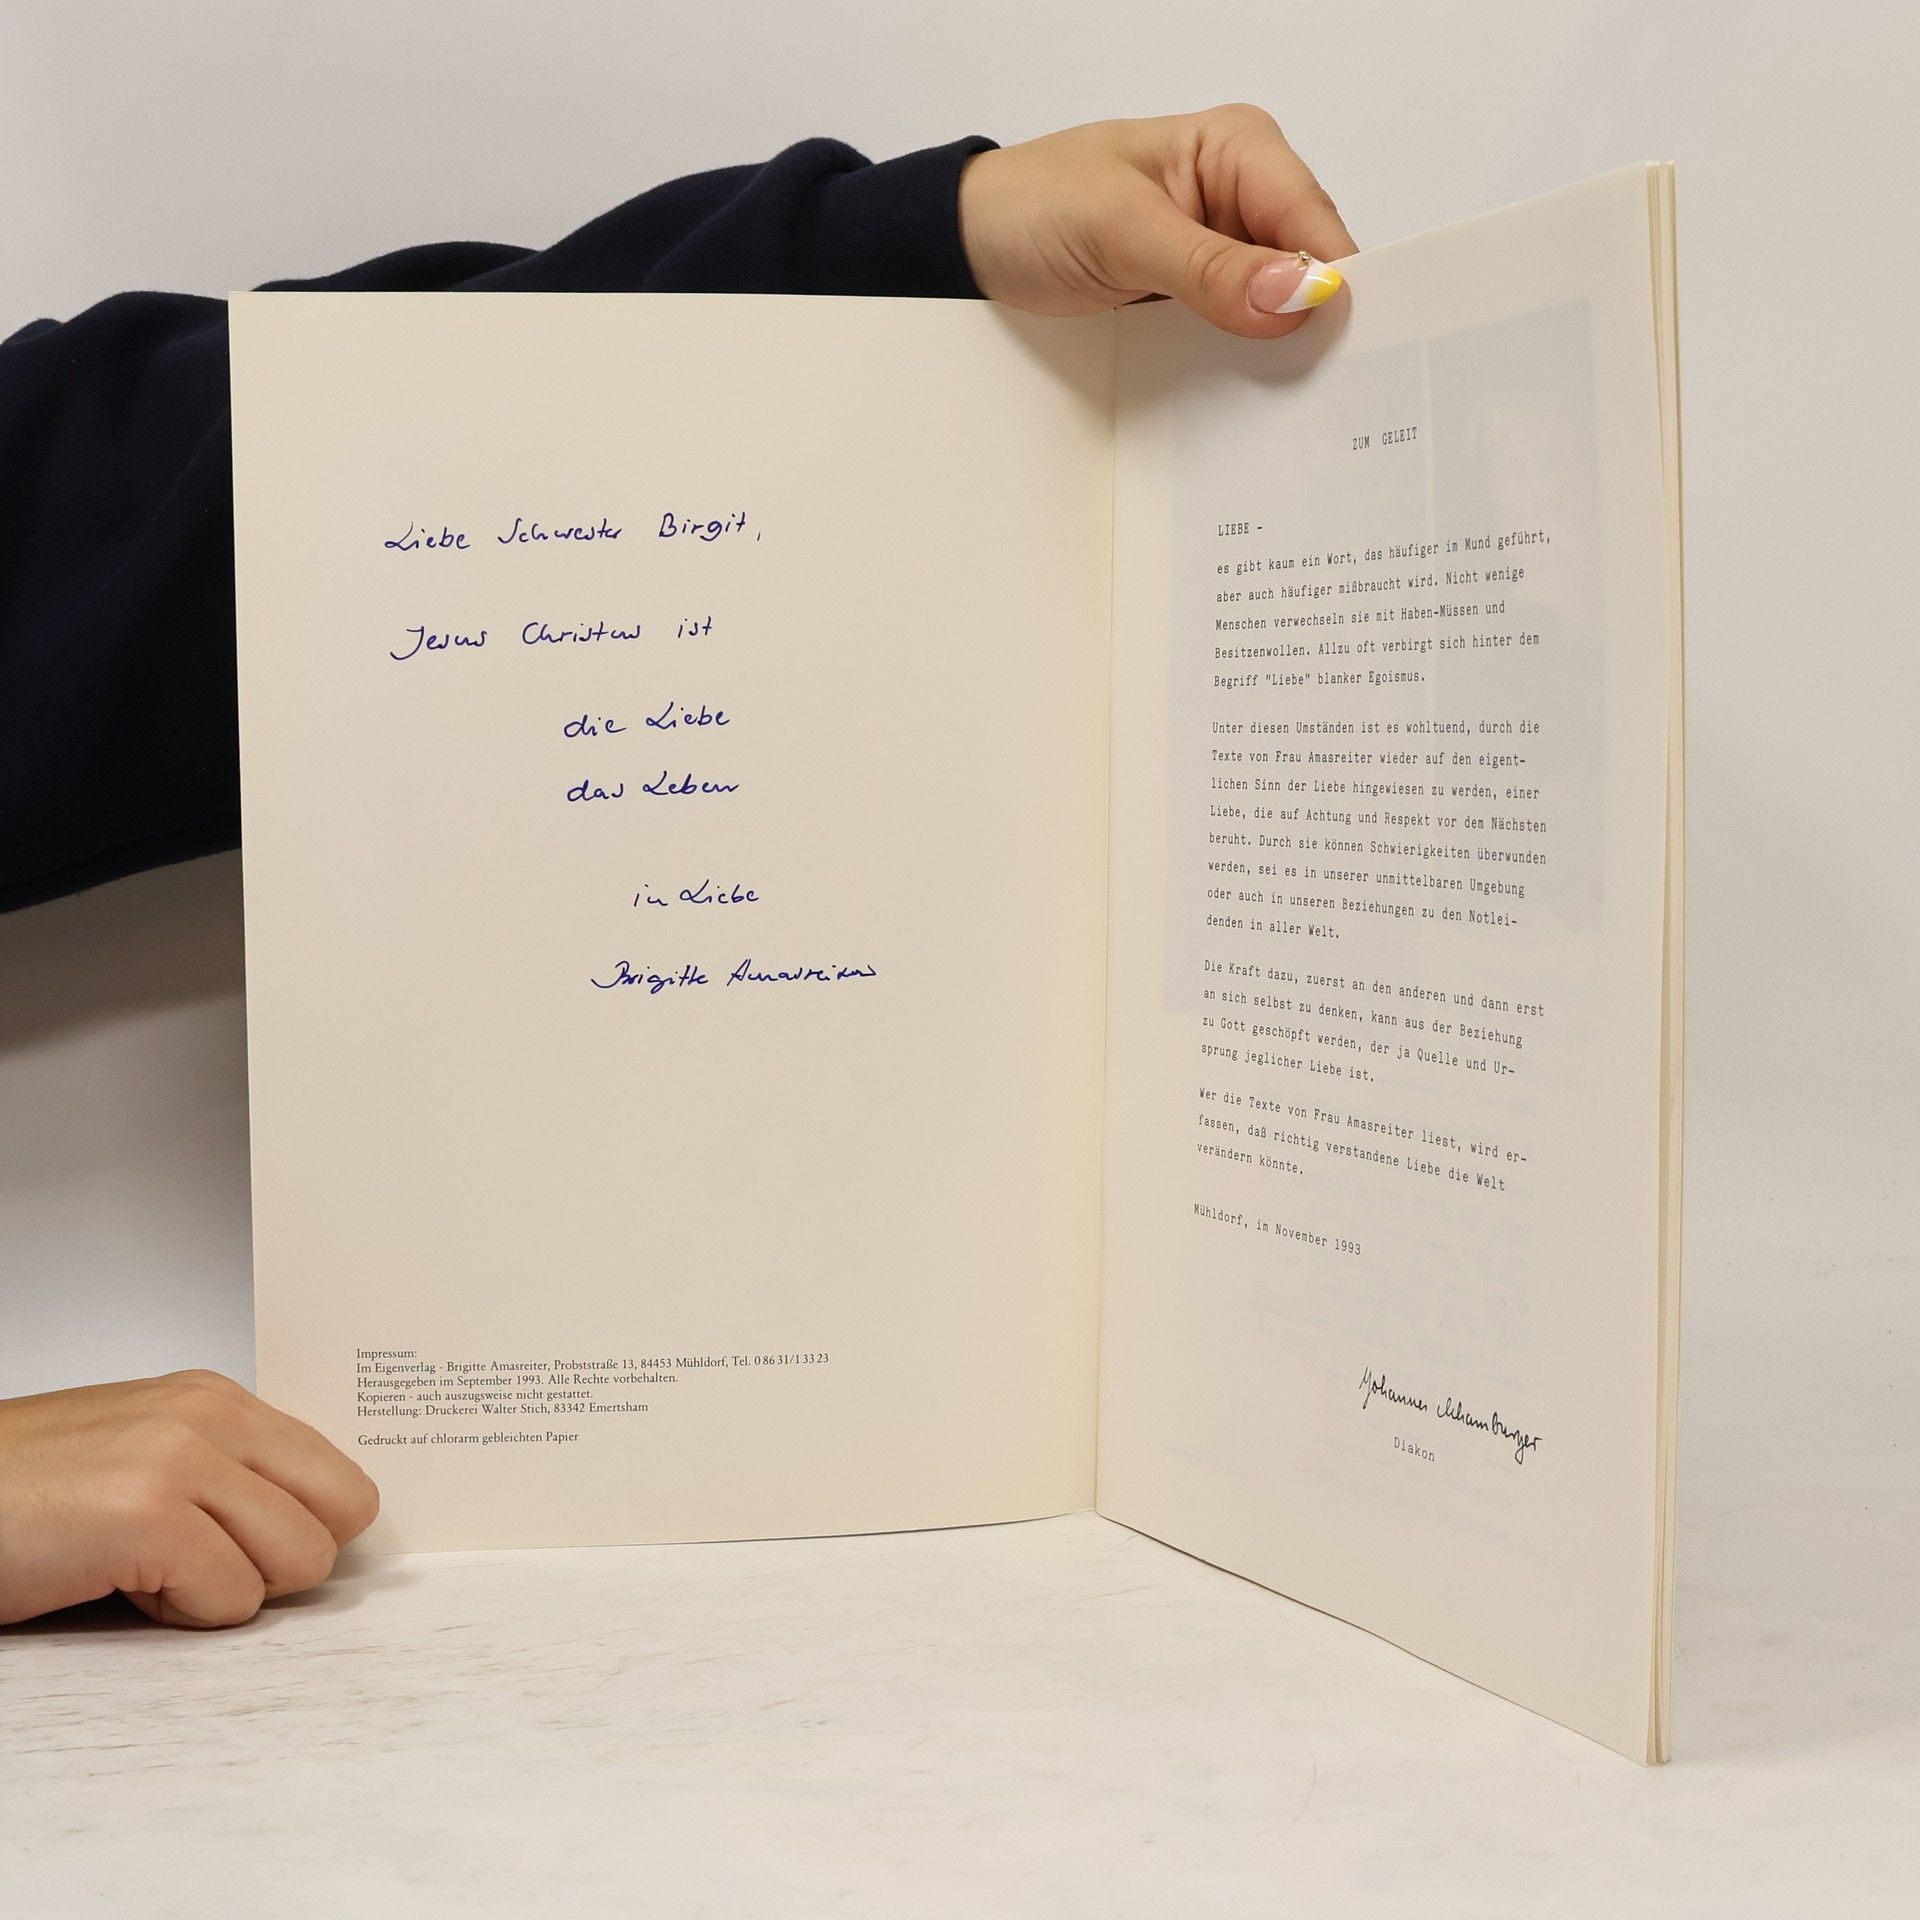 Liebe Schwester Birgit,
Jesus Christus ist
die Liebe
das Leben
in Liebe
Brigitte Amasreiter
Impressum:
Im Eigenverlag - Brigitte Amasreiter, Probststraße 13, 84453 Mühldorf, Tel. 0 86 31/1 33 23
Herausgegeben im September 1993. Alle Rechte vorbehalten.
Kopieren - auch auszugsweise nicht gestattet.
Herstellung: Druckerei Walter Stich, 83342 Emertsham
Gedruckt auf chlorarm gebleichten Papier
ZUM GELEIT
LIEBE -
es gibt kaum ein Wort, das häufiger im Mund geführt,
aber auch häufiger mißbraucht wird. Nicht wenige
Menschen verwechseln sie mit Haben-Müssen und
Besitzenwollen. Allzu oft verbirgt sich hinter dem
Begriff "Liebe" blanker Egoismus.
Unter diesen Umständen ist es wohltuend, durch die
Texte von Frau Amasreiter wieder auf den eigent-
lichen Sinn der Liebe hingewiesen zu werden, einer
Liebe, die auf Achtung und Respekt vor dem Nächsten
beruht. Durch sie können Schwierigkeiten überwunden
werden, sei es in unserer unmittelbaren Umgebung
oder auch in unseren Beziehungen zu den Notlei-
denden in aller Welt.
Die Kraft dazu, zuerst an den anderen und dann erst
an sich selbst zu denken, kann aus der Beziehung
zu Gott geschöpft werden, der ja Quelle und Ur-
sprung jeglicher Liebe ist.
Wer die Texte von Frau Amasreiter liest, wird er-
fassen, daß richtig verstandene Liebe die Welt
verändern könnte.
Mühldorf, im November 1993
Johannes
Diakon